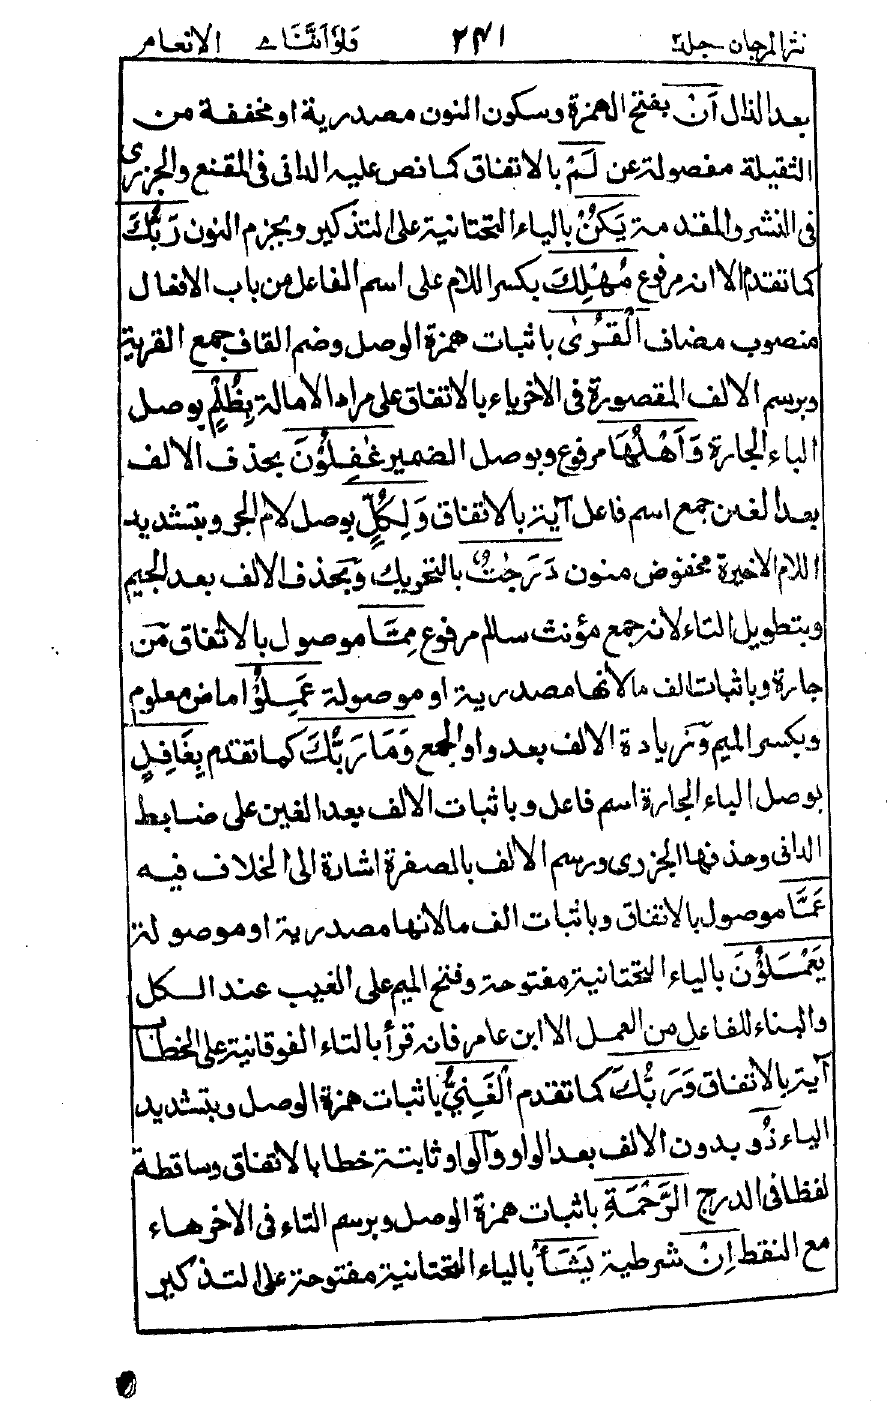 نثر المرجان جلد ٢ ٢٤١ ولو اننا ے الانعام
بعد الذال اَنْ بفتح الهمزة وسكون النون مصدرية او مخففة من
الثقيلة مفصولة عن لَمْ بالاتفاق كما نص عليه الدانى فى المقنع والجزرى
فى النشر والمقدمة يَكُنْ بالياء التحتانية على التذكير وبجزم النون رَبُّكَ
كما تقدم الا انه مرفوع مُهْلِكَ بكسر اللام على اسم الفاعل من باب الافعال
منصوب مضاف الْقُرٰى باثبات همزة الوصل وضم القاف جمع القرية
وبرسم الالف المقصورة فى الاخر ياء بالاتفاق على مراد الامالة بِظُلْمٍ بوصل
الباء الجارة وَاَهْلُهَا مرفوع وبوصل الضمير غٰفِلُوْنَ بحذف الالف
بعد الغين جمع اسم فاعل آية بالاتفاق وَلِكُلٍّ بوصل لام الجر وبتشديد
اللام الاخيرة مخفوض منون دَرَجٰتٌ بالتحريك وبحذف الالف بعد الجيم
وبتطويل التاء لانه جمع مؤنث سالم مرفوع مِمَّا موصول بالاتفاق من
جارة وباثبات الف ما لانها مصدرية او موصولة عَمِلُوْا ماض معلوم
وبكسر الميم وزيادة الالف بعد واو الجمع وَمَا رَبُّكَ كما تقدم بِغَافِلٍ
بوصل الباء الجارة اسم فاعل وباثبات الالف بعد الغين على ضابط
الدانى وحذفها الجزرى ورسم الالف بالصفرة اشارة الى الخلاف فيه
عَمَّا موصول بالاتفاق وباثبات الف ما لانها مصدرية او موصولة
يَعْمَلُوْنَ بالياء التحتانية مفتوحة وفتح الميم على الغيب عند الكل
والبناء للفاعل من العمل الا ابن عامر فانه قرأ بالتاء الفوقانية على الخطاب
آية بالاتفاق وَرَبُّكَ كما تقدم الْغَنِيُّ باثبات همزة الوصل وبتشديد
الياء ذُو بدون الالف بعد الواو والواو ثابتة خطا بالاتفاق وساقطة
لفظا فى الدرج الرَّحْمَةِ باثبات همزة الوصل وبرسم التاء فى الاخر هاء
مع النقط اِنْ شرطية يَشَأْ بالياء التحتانية مفتوحة على التذكير